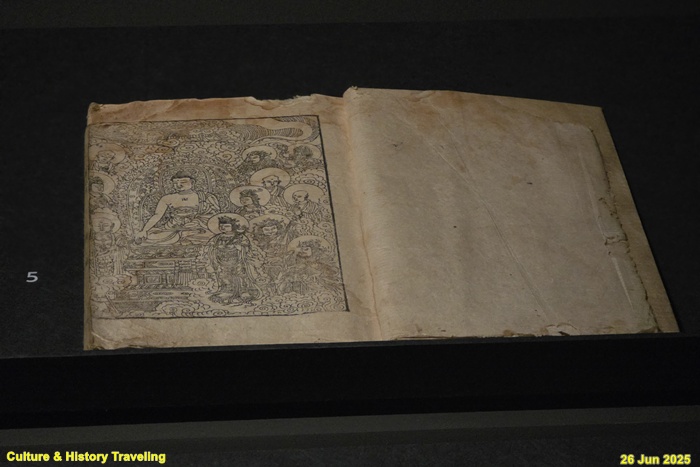 5
Culture & History Traveling
26 Jun 2025